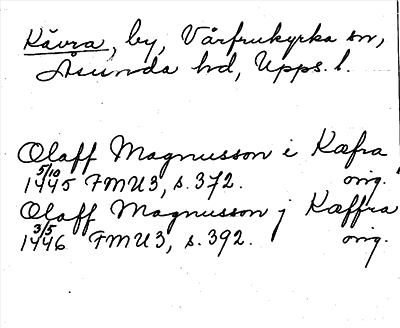 Kävra, by, Vårfrukyrka sn,
Åsunda hd, Upps. l.
Olaff Magnusson i Kæfra
5/10 1445 FMU3, s. 372. orig.
Olaff Magnusson j Kæffra
3/5 1446 FMU3, s. 392. orig.